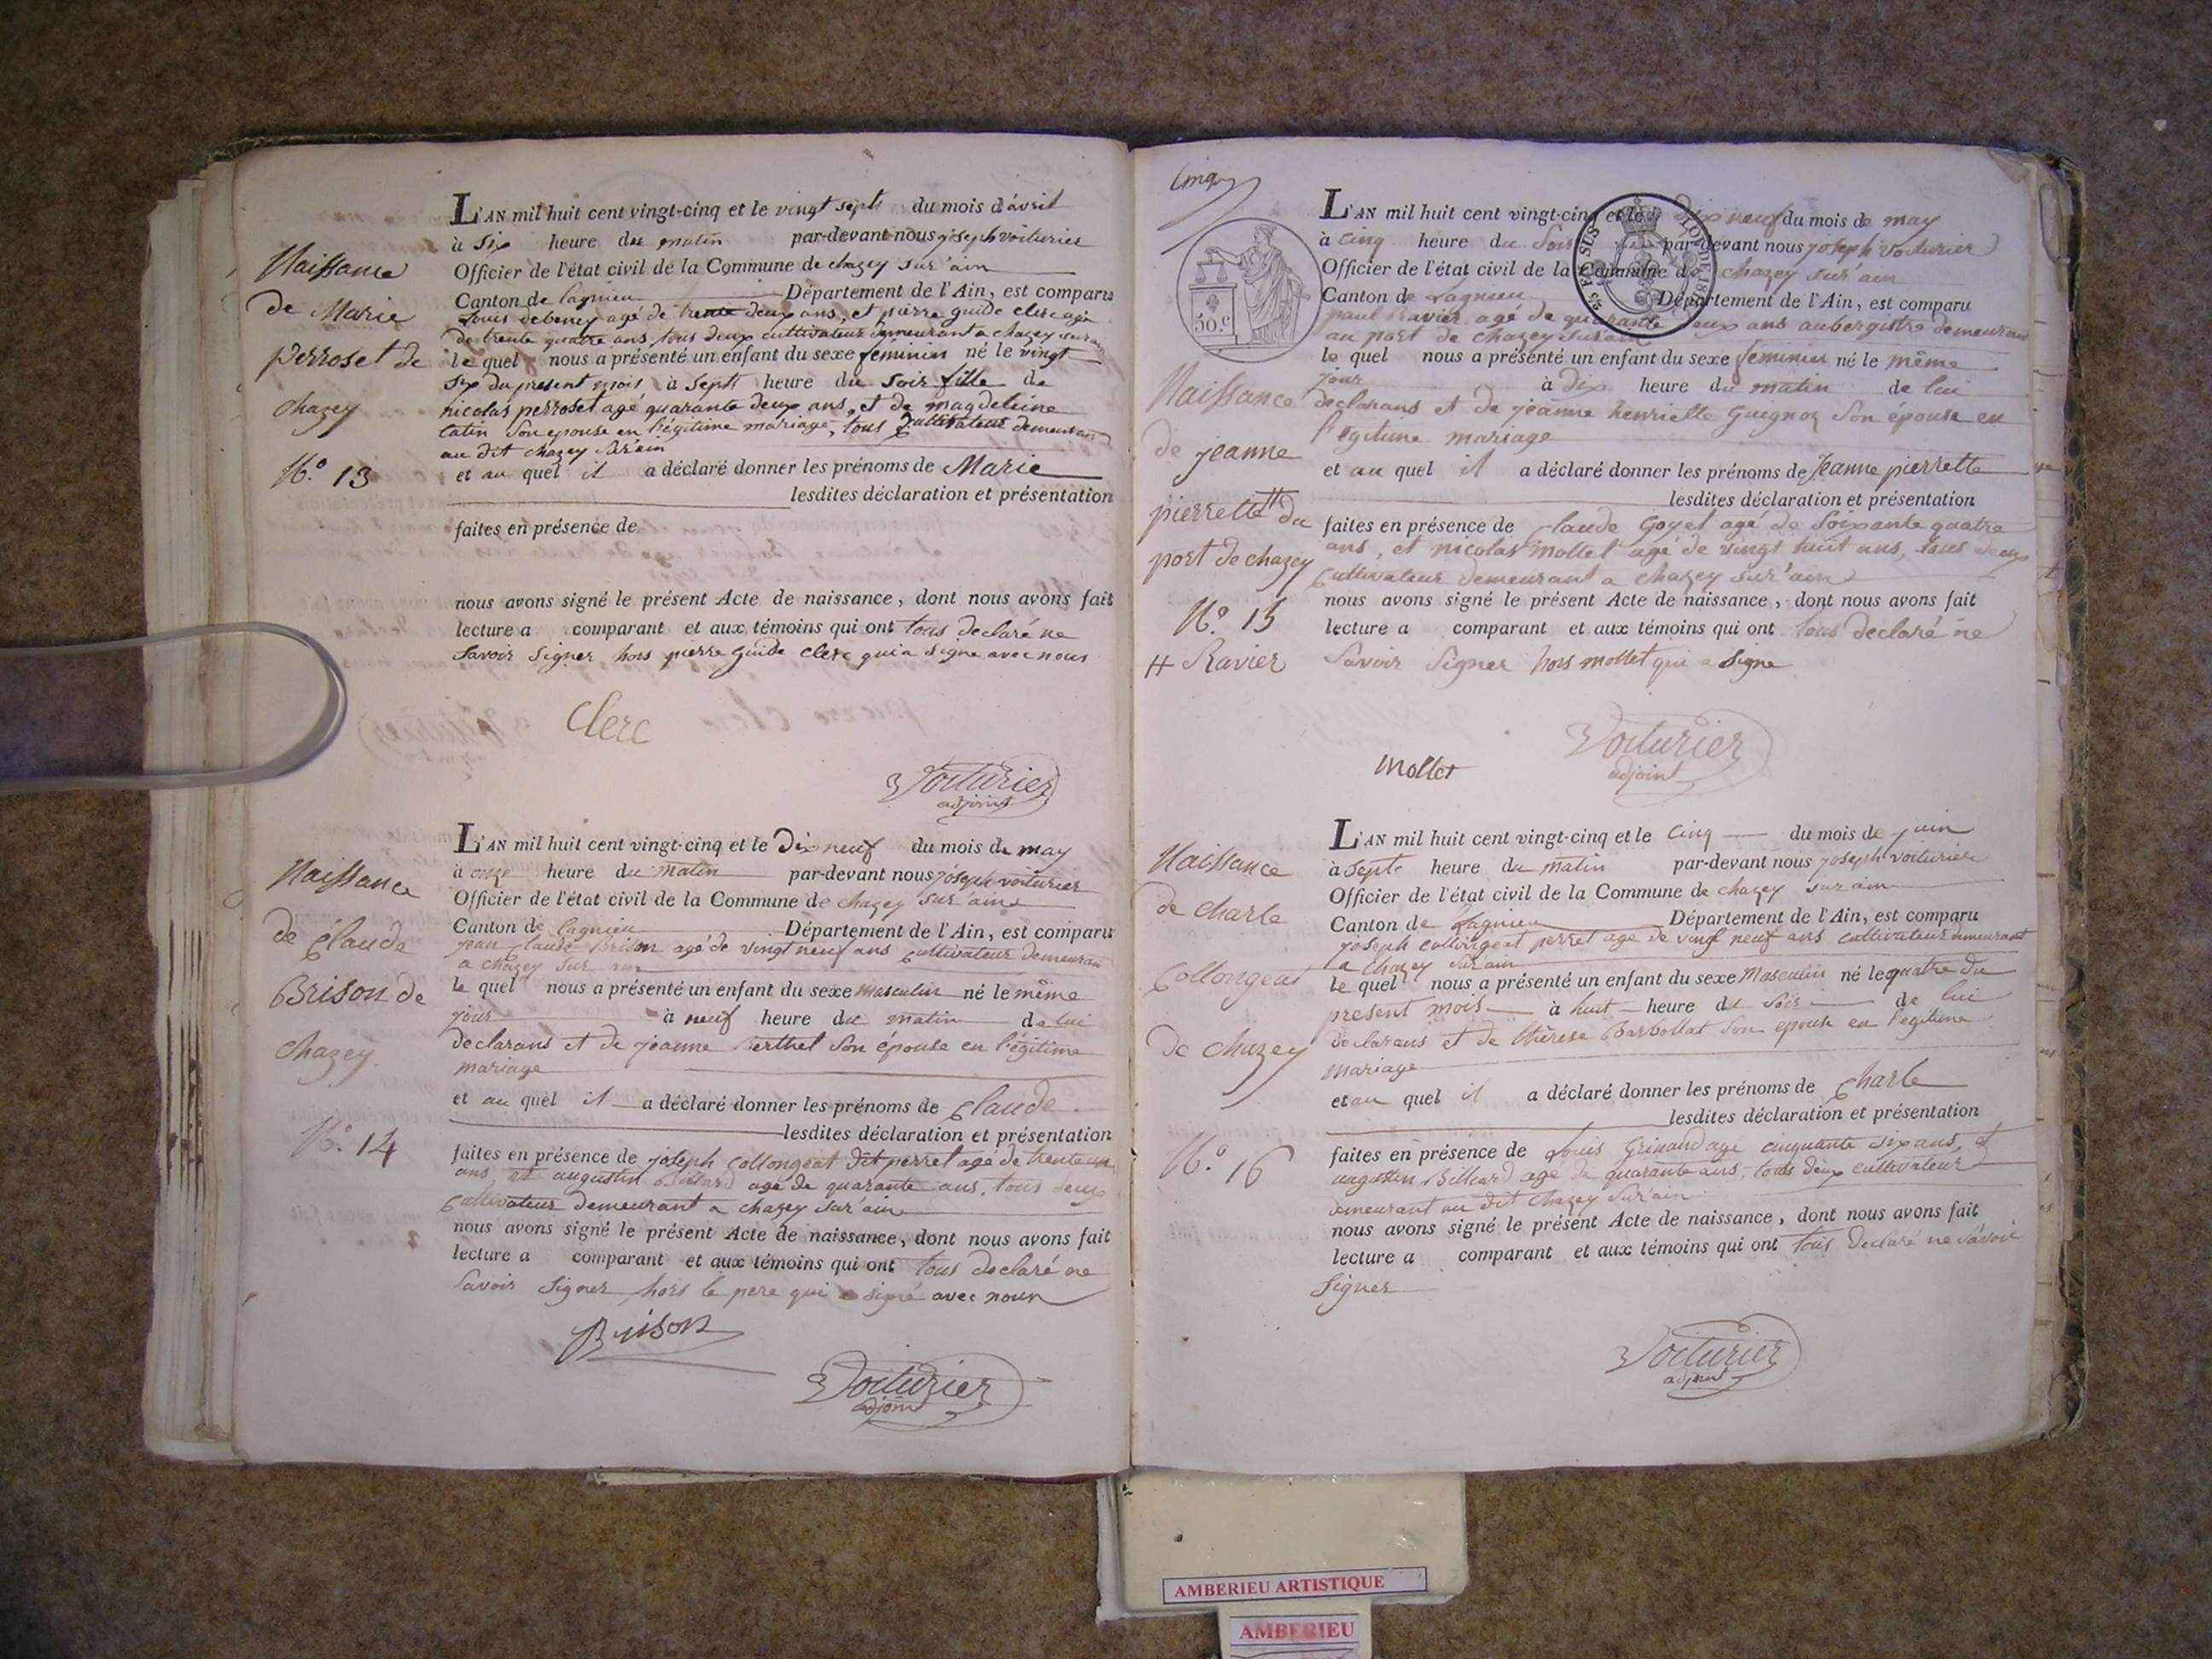 L'AN mil huit cent vingt-cinq et le vingt sept du mois d'avril
à Six heure du matin par-devant nous joseph voiturier
Officier de l'état civil de la Commune de chazey sur'ain
Canton de lagnieu Département de l'Ain, est comparu
Louis debeney agé de trente deux ans, et pierre guide clerc agé
de trente quatre ans, tous deux cultivateur demeurant a chazey sur ain
le quel nous a présenté un enfant du sexe feminin né le vingt
six du present mois à Sept heure du Soir fille de
nicolas perroset agé quarante deux ans, et de magdeleine
tatin Son epouse en légitime mariage, tous cultivateur demeurant
au dit chazey Sur'ain
et au quel il a déclaré donner les prénoms de Marie
lesdites déclaration et présentation
faites en présence de
nous avons signé le présent Acte de naissance, dont nous avons fait
lecture a comparant et aux témoins qui ont tous declaré ne
Savoir Signer hors pierre guide clerc qui a signé avec nous
Clerc
Voiturier
adjoint
Naissance
de Marie
perroset de
chazey
N.° 13
L'AN mil huit cent vingt-cinq et le Dix neuf du mois de may
à onze heure du matin par-devant nous joseph voiturier
Officier de l'état civil de la Commune de chazey Sur ain
Canton de lagnieu Département de l'Ain, est comparu
jean claude Brison agé de vingt neuf ans cultivateur demeurant
a chazey sur ain
le quel nous a présenté un enfant du sexe masculin né le même
jour à neuf heure du matin de lui
declarans et de jeanne Berthet Son épouse en légitime
mariage
et au quel il a déclaré donner les prénoms de Claude
lesdites déclaration et présentation
faites en présence de joseph Collongeat dit perret agé de trente un
ans, et augustin Billiard agé de quarante ans, tous deux
cultivateur demeurant a chazey Sur'ain
nous avons signé le présent Acte de naissance, dont nous avons fait
lecture a comparant et aux témoins qui ont tous declaré ne
Savoir Signer hors le pere qui a signé avec nous
Brison
Voiturier
adjoint
Naissance
de Claude
Brison de
chazey
N.° 14
Cinq
50.c
L'AN mil huit cent vingt-cinq et le Dix neuf du mois de may
à cinq heure du Soir par-devant nous joseph voiturier
Officier de l'état civil de la Commune de chazey sur'ain
Canton de Lagnieu Département de l'Ain, est comparu
paul Ravier agé de quarante deux ans aubergiste demeurant
au port de chazey sur ain
le quel nous a présenté un enfant du sexe feminin né le même
jour à dix heure du matin de lui
declarans et de jeanne henriette Guignoz Son épouse en
légitime mariage
et au quel il a déclaré donner les prénoms de Jeanne pierrette
lesdites déclaration et présentation
faites en présence de Claude Goyet agé de Soixante quatre
ans, et nicolas mollet agé de vingt huit ans, tous deux
cultivateur demeurant a chazey sur'ain
nous avons signé le présent Acte de naissance, dont nous avons fait
lecture a comparant et aux témoins qui ont tous declaré ne
Savoir Signer hors mollet qui a Signé
mollet
Voiturier
adjoint
Naissance
de jeanne
pierrette # du
port de chazey
N.° 15
# Ravier
L'AN mil huit cent vingt-cinq et le Cinq du mois de juin
à Sept heure du matin par-devant nous joseph voiturier
Officier de l'état civil de la Commune de chazey sur ain
Canton de Lagnieu Département de l'Ain, est comparu
joseph collongeat perret agé de vingt neuf ans cultivateur demeurant
a chazey sur'ain
le quel nous a présenté un enfant du sexe Masculin né le quatre du
present mois à huit heure du Soir de lui
declarans et de thérese Barbollat Son epouse en legitime
mariage
et au quel il a déclaré donner les prénoms de Charle
lesdites déclaration et présentation
faites en présence de Louis Grinand agé cinquante six ans, et
augustin Billiard agé de quarante ans, tous deux cultivateur
demeurant au dit chazey Sur ain
nous avons signé le présent Acte de naissance, dont nous avons fait
lecture a comparant et aux témoins qui ont tous declaré ne Savoir
Signer
Voiturier
adjoint
Naissance
de charle
Collongeat
de chazey
N.° 16
AMBERIEU ARTISTIQUE
AMBERIEU